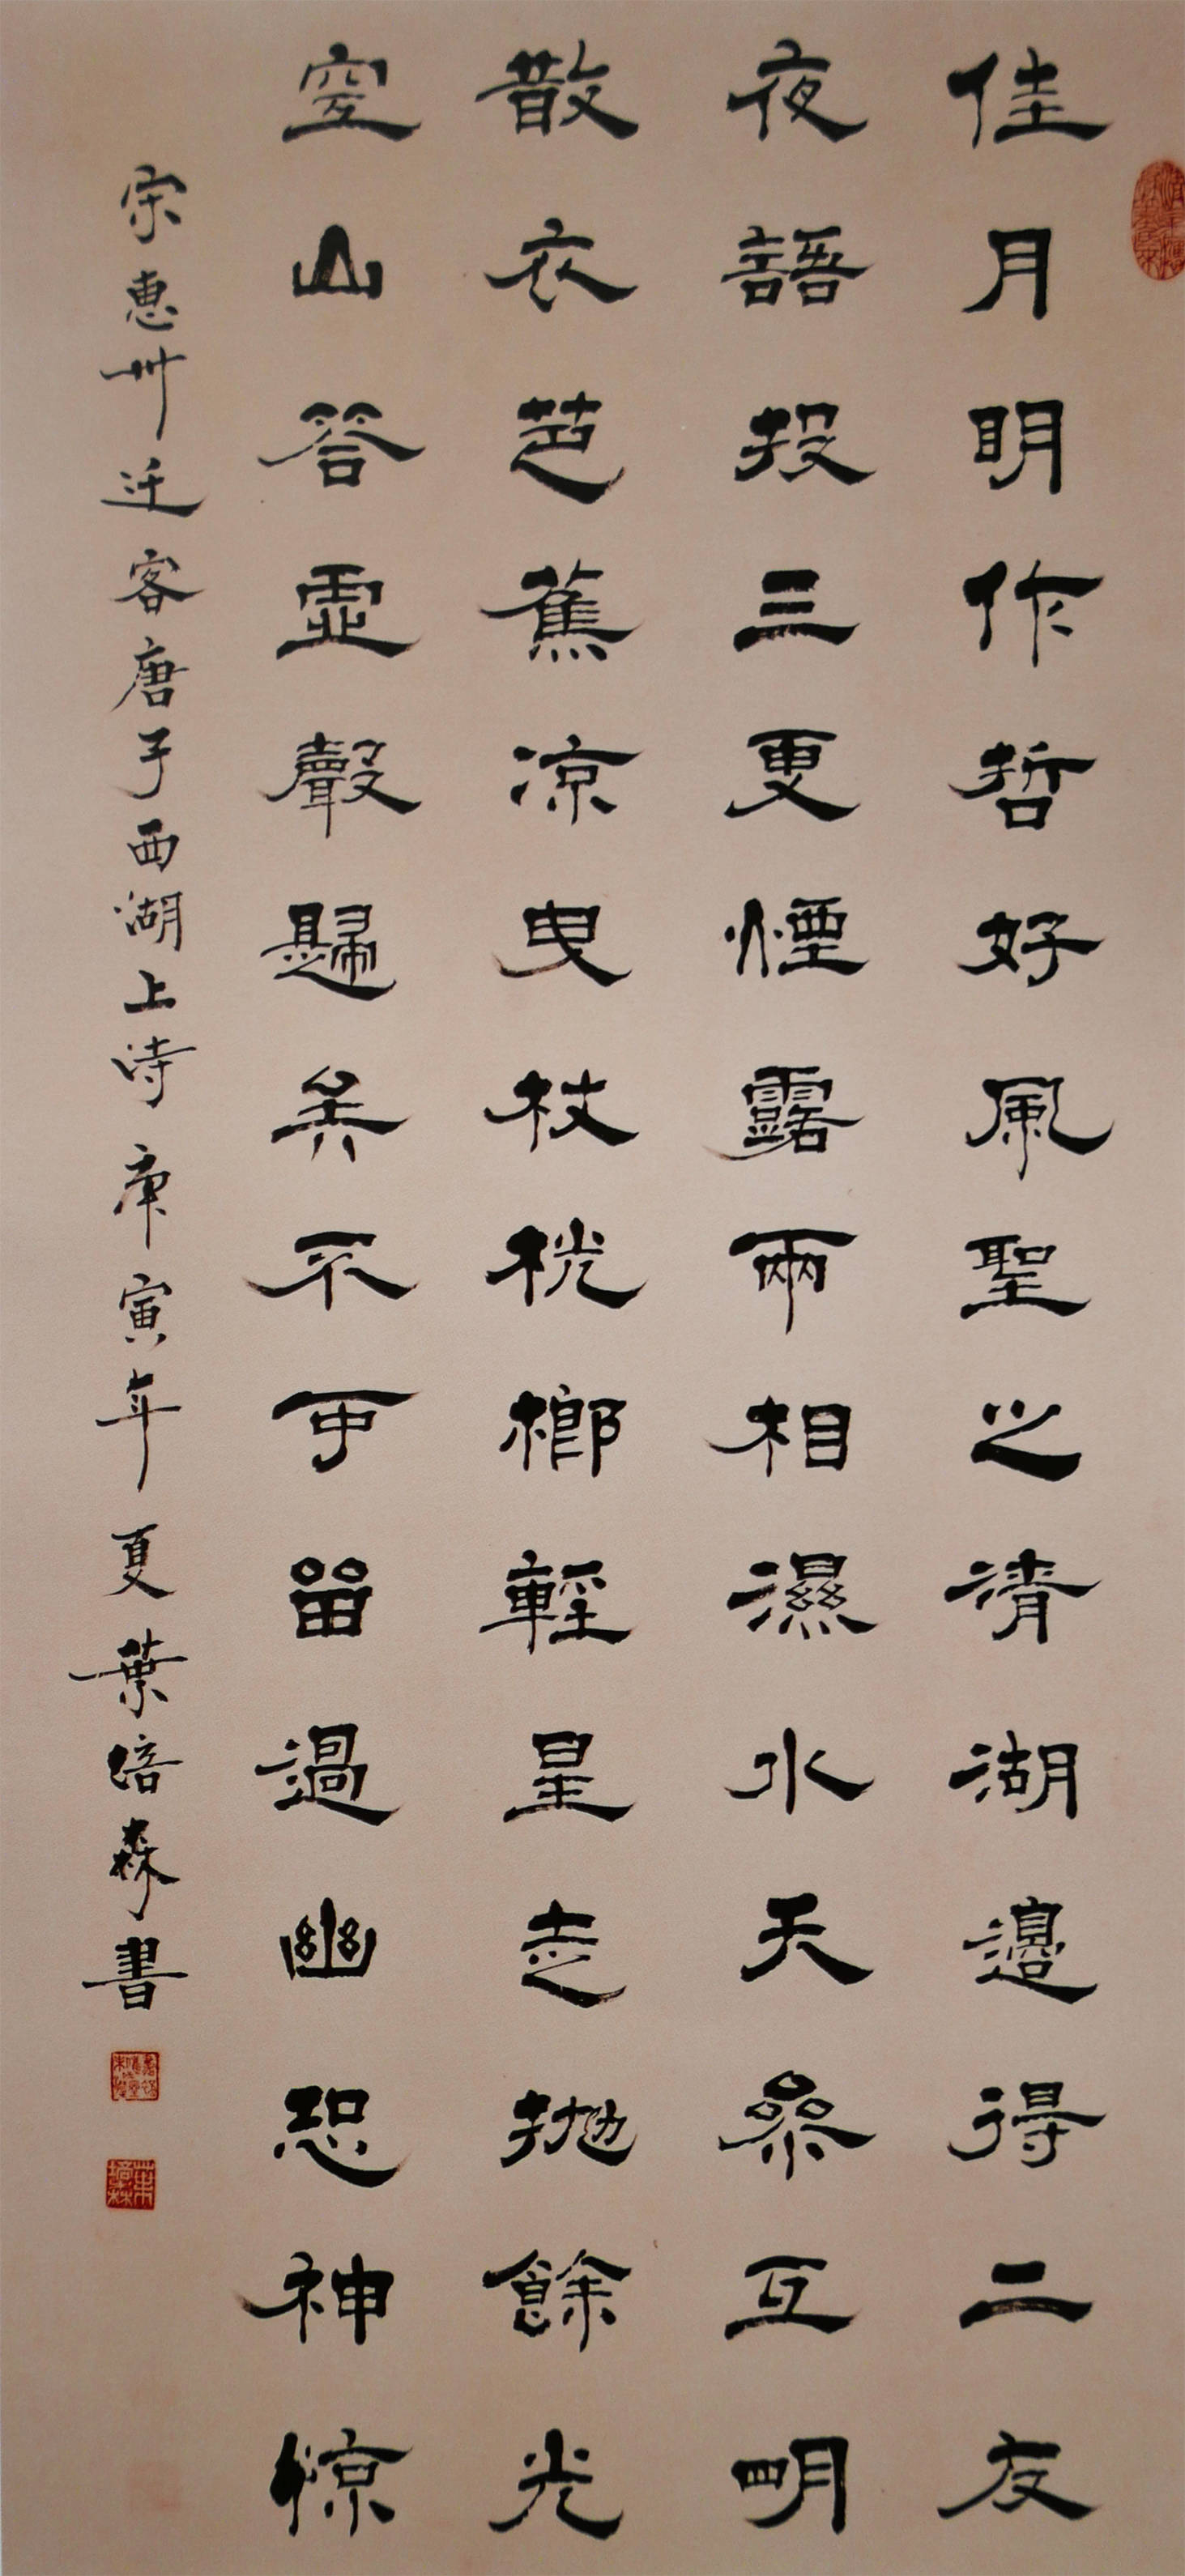 佳月明作哲好風聖之清湖邊得二友
夜語投三更煙露兩相濕水天參互明
散衣芭蕉凉曳杖桄榔輕星走拋餘光
空山答虛聲歸矣不可留過幽恐神惊
宋惠州迁客唐子西湖上诗庚寅年夏葉培森書